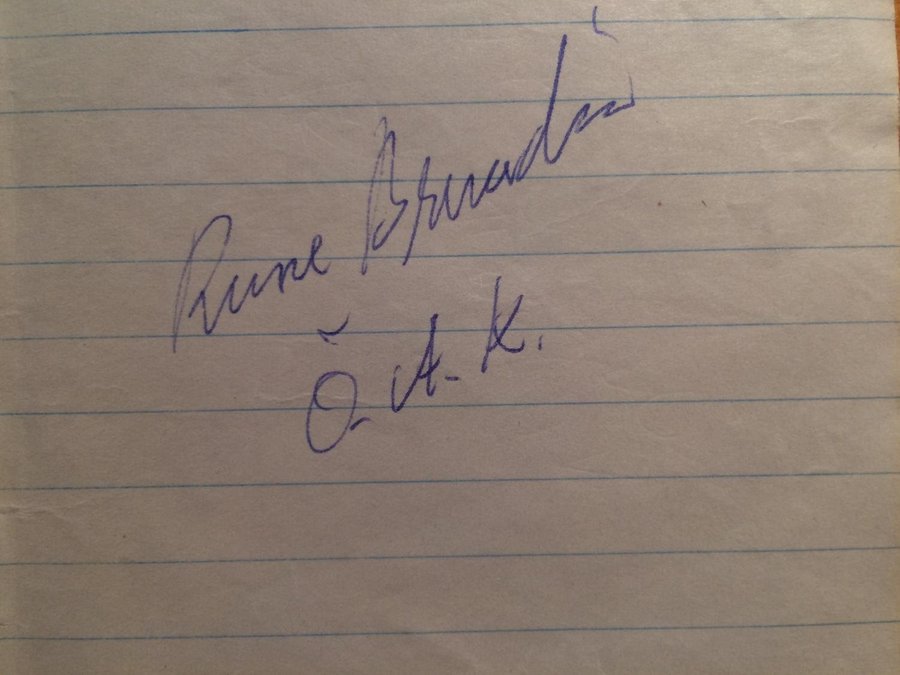 Rune Brundin
Ö.A.K.